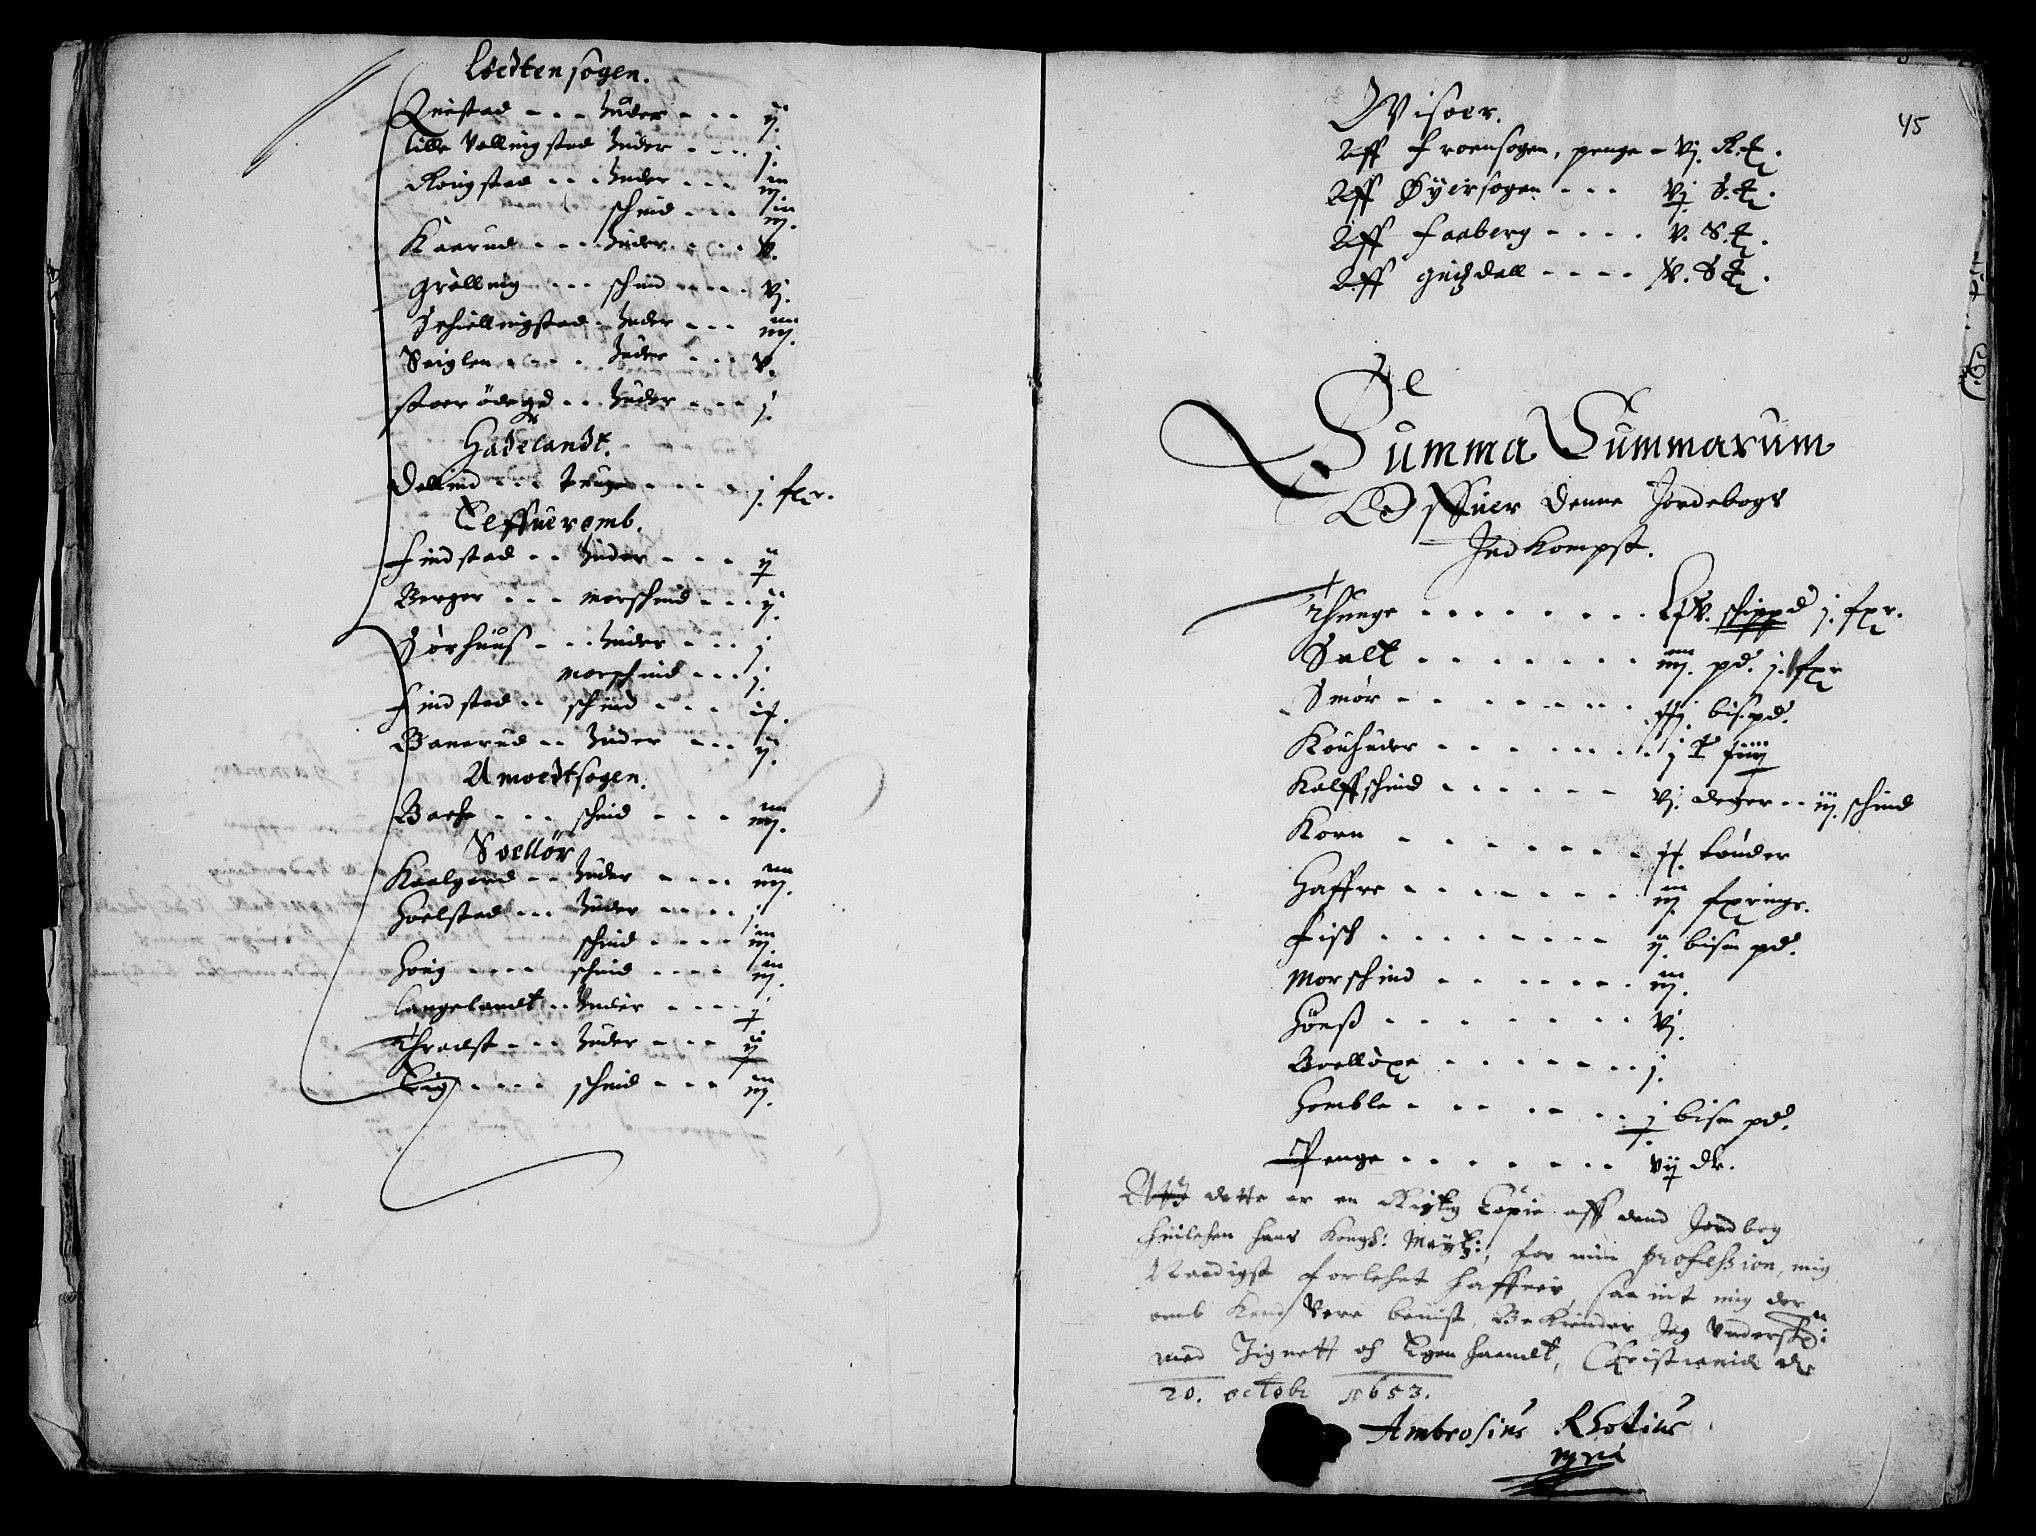 Löedten sogen.
Quistad - - - huder - - - ij.
Lille Vollingstad huder - - - j.
Ringstad - - - huder - - - iij
schind - - - iij.
Kaarud - - - huder - - - v.
Grölling - - - schind - - - vj.
Schiellingstad - huder - - - iiij.
Seiglen - - - huder - - - v.
Stoer ödegd - - huder - - - j.
Hadelandt.
Dallind - - - tunge - - - j. fxr.
Elffuerumb.
Findstad - - huder - - - ij
Berger - - - morschind - - - ij.
Sörhuus - - - huder - - - j
morschind - - - j.
Findstad - - schind - - - ix.
Banerud - - huder - - - ij.
Amoedtsogen.
Backe - - - schind - - - iiij.
Soellör
Kaalgaard - - huder - - - iiij.
Hoelstad - - - huder - - - j
schind - - - iij.
Hoeg - - - schind - - - iij.
Langelandt - - huder - - - j
Thradst - - - huder - - - ij
Eig - - - schind - - - iij.
45
Wisöer.
Aff Froensogen, penge - vj. R.t.
Aff Öyersogen - - - vj S.t.
Aff Faaberg - - - - v. S.t.
Aff Gudzdall - - - - xv. S.t.
Summa Summarum
Offuer denne Jordebogs
Indkompst.
Thunge - - - - - - - Lxv. schippd j. fxr.
Salt - - - - - - - iiij. pd. j. fxr
Smör - - - - - - - bis. pd.
Kouhuder - - - - - - -
Kalffschind - - - - - - vj. deger - - iij. schind
Korn - - - - - - - xx. tönder
Haffre - - - - - - - iij fxringr.
Fisch - - - - - - - ij bisn pd.
Morschind - - - - - - iij.
Hönß - - - - - - - vj.
Boelloxe - - - - - - - j.
Homble - - - - - - - j bisn pd.
Penge - - - - - - - vij dr.
Att dette er en Rigtig Copie aff dend Jordbog
huilchen hans Kongl: Maytz:, for min profession, mig
Naadigst forlehnt haffuer, saa uit mig der
omb kand vere beuist, Bekiender Jeg Vnderschr:
med Zignett och Egen haandt, Christiania d.
20. octobr 1653.
Ambrosius Rhodius
mpria